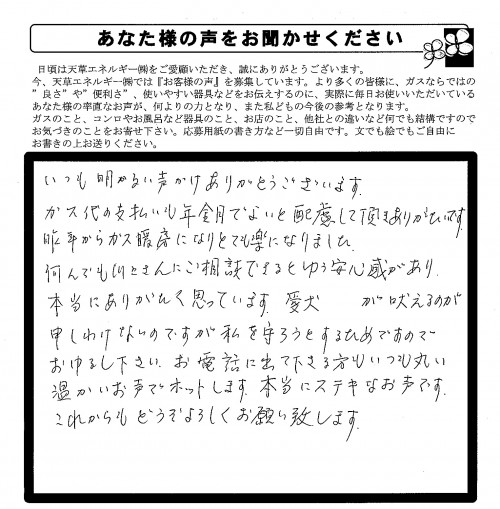 あなた様の声をお聞かせください
日頃は天草エネルギー㈱をご愛顧いただき、誠にありがとうございます。
今、天草エネルギー㈱では『お客様の声』を募集しています。より多くの皆様に、ガスならではの
”良さ”や”便利さ”、使いやすい器具などをお伝えするのに、実際に毎日お使いいただいている
あなた様の率直なお声が、何よりの力となり、また私どもの今後の参考となります。
ガスのこと、コンロやお風呂など器具のこと、お店のこと、他社との違いなど何でも結構ですので
お気づきのことをお寄せ下さい。応募用紙の書き方など一切自由です。文でも絵でもご自由に
お書きの上お送りください。
いつも明かるい声かけありがとうございます。
ガス代の支払いも年金月でないと配慮して頂きありがたいです。
昨年からガス暖房になりとても楽になりました。
何んでも さんにご相談できるとゆう安心感があり、
本当にありがたく思っています。愛犬 が吠えるのが
申しわけないのですが私を守ろうとするためですので
おゆるし下さい。お電話に出て下さる方もいつも丸い
温かいお声でホットします。本当にステキなお声です。
これからもどうぞよろしくお願い致します。